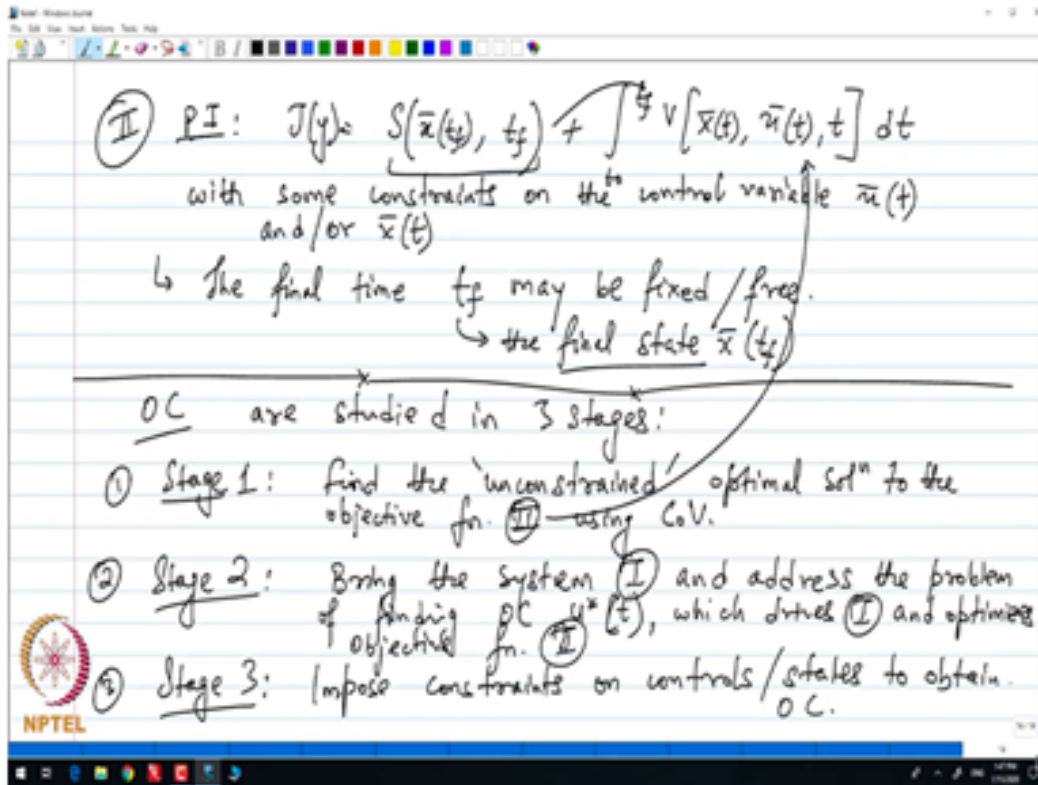 File Edit View Insert Actions Tools Help
II PI: J(y)= S(x̄(tf), tf) + ∫ₜ₀^tf V[x̄(t), ū(t), t] dt
with some constraints on the control variable ū(t)
and/or x̄(t)
↳ The final time tf may be fixed/free.
↳ the final state x̄(tf)
OC are studied in 3 stages:
① Stage 1: find the 'unconstrained' optimal solⁿ to the
objective fn. II using CoV.
② Stage 2: Bring the system I and address the problem
of finding OC u*(t), which drives I and optimizes
objective fn. II
③ Stage 3: Impose constraints on controls/states to obtain
OC.
NPTEL